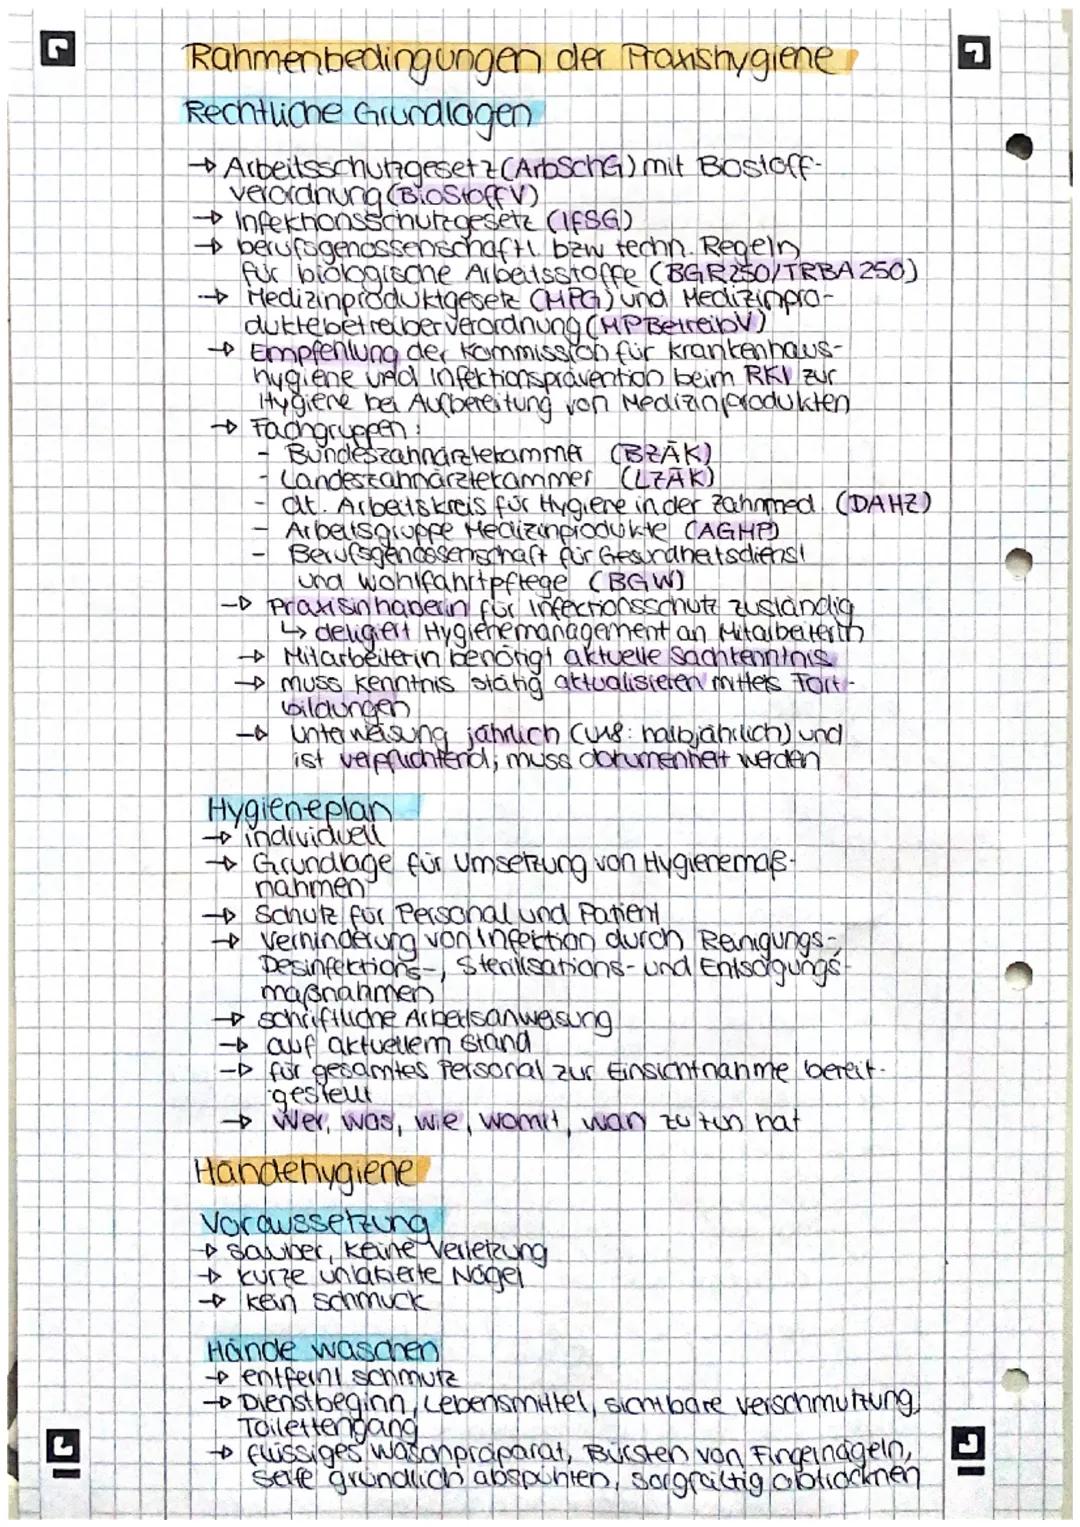 Rahmenbedingungen der Praxishygiene
Rechtliche Grundlagen
→ Arbeitsschutzgesetz (ArbSchG) mit Biostoff-
verordnung (BioStoffV)
→ Infektionsschutzgesetz (IfSG)
→ berufsgenossenschaftl. bzw techn. Regeln
für biologische Arbeitsstoffe (BGR250/TRBA 250)
→ Medizinproduktgesetz (MPG) und Medizinpro-
duktebetreiberverordnung (MPBetreibV)
→ Empfehlung der Kommission für Krankenhaus-
hygiene und Infektionsprävention beim RKI zur
Hygiene bei Aufbereitung von Medizinprodukten
→ Fachgruppen:
- Bundeszahnärztekammer (BZÄK)
- Landeszahnärztekammer (LZÄK)
- dt. Arbeitskreis für Hygiene in der Zahnmed. (DAHZ)
- Arbeitsgruppe Medizinprodukte (AGMP)
- Berufsgenossenschaft für Gesundheitsdienst
und Wohlfahrtpflege (BGW)
→ Praxisinhaberin für Infectionsschutz zuständig
↳ deligiert Hygienemanagement an Mitarbeiterin
→ Mitarbeiterin benötigt aktuelle Sachkenntnis
→ muss Kenntnis stätig aktualisieren mittels Fort-
bildungen
→ Unterweisung jährlich (U18: halbjährlich) und
ist verpflichtend, muss dokumentiert werden
Hygieneplan
→ individuell
→ Grundlage für Umsetzung von Hygienemaß-
nahmen
→ Schutz für Personal und Patient
→ Verhinderung von Infektion durch Reinigungs-,
Desinfektions-, Sterilisations- und Entsorgungs-
maßnahmen
→ schriftliche Arbeitsanweisung
→ auf aktuellem Stand
→ für gesamtes Personal zur Einsichtnahme bereit-
gestellt
→ Wer, was, wie, womit, wan zu tun hat
Händehygiene
Voraussetzung
→ sauber, keine Verletzung
→ kurze unlakierte Nägel
→ kein Schmuck
Hände waschen
→ entfernt schmutz
→ Dienstbeginn, Lebensmittel, sichtbare Verschmutzung,
Toilettengang
→ flüssiges Waschpräparat, Bürsten von Fingernägeln,
Seife gründlich abspühlen, sorgfältig abtrocknen